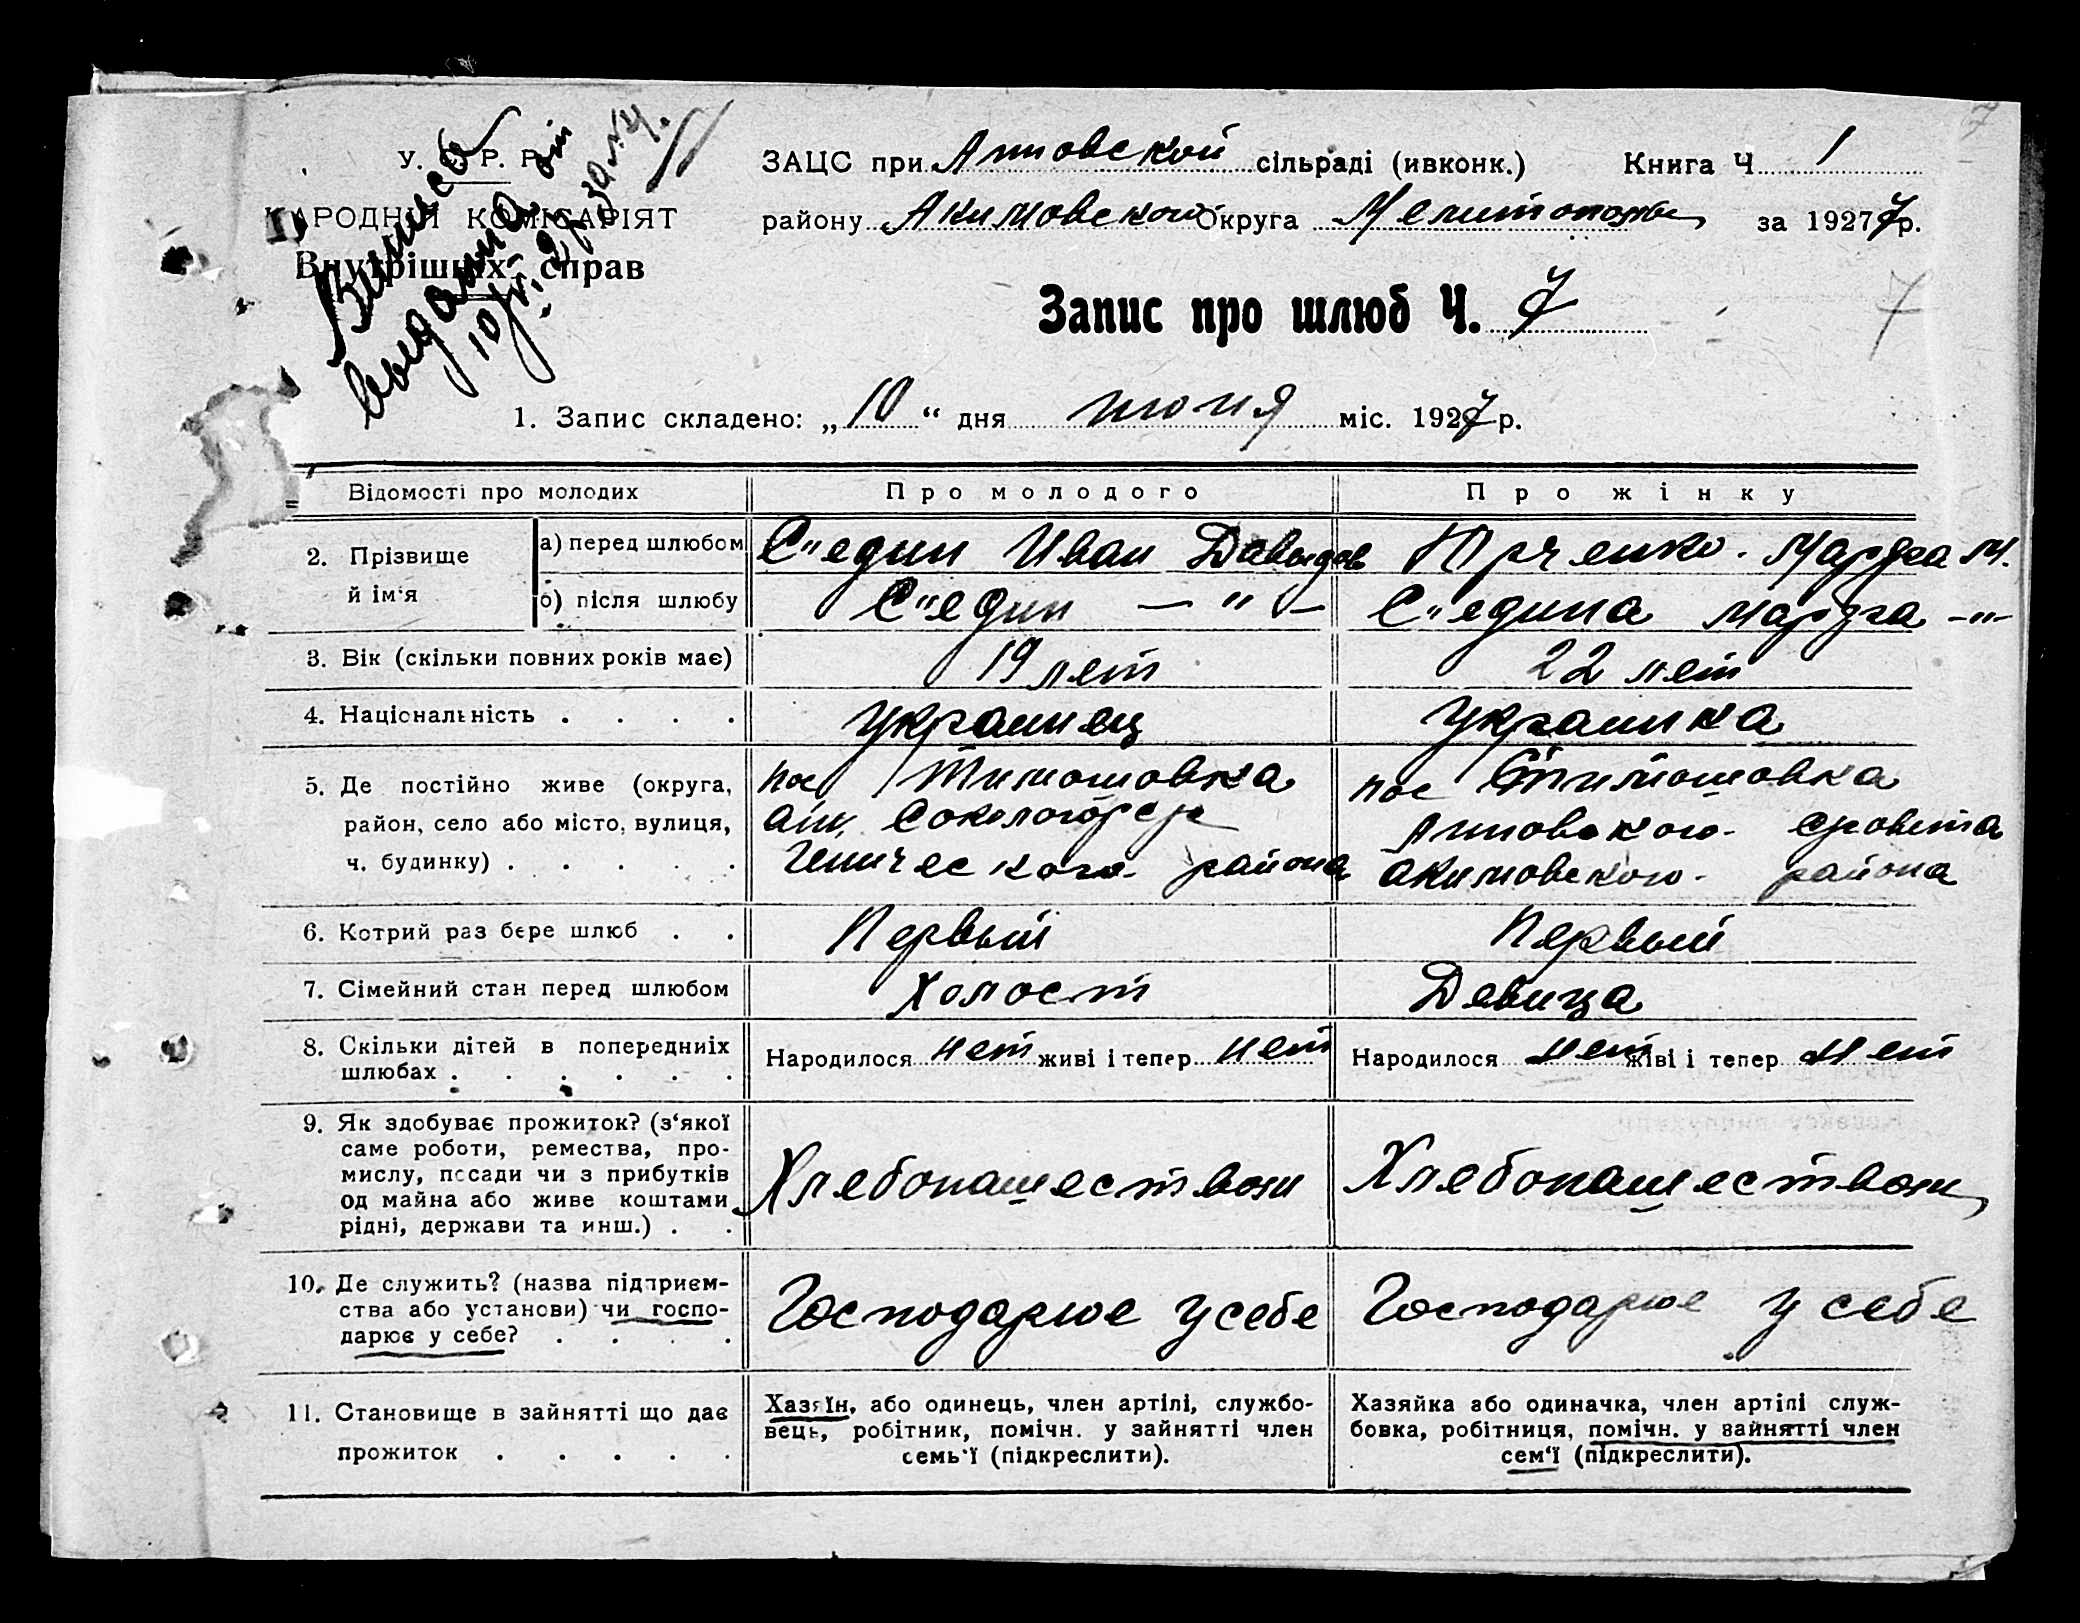 7
Выпись
выдана
У. С. Р. Р.
НАРОДНІЙ КОМІСАРІЯТ
Внутрішніх справ
ЗАЦС при Анновской сільраді (ивконк.) Книга Ч 1
району Акимовского Округа за 1927 7 р.
Запис про шлюб Ч. 7
7
1. Запис складено: „ 10 “ дня июня міс. 1927 р.
Відомості про молодих Про молодого Про жінку
2. Прізвище й ім‘я
а) перед шлюбом С"един Иван Давыдов Юрченко Марфа М.
б) після шлюбу С"един — " — С"едина Марфа -"-
3. Вік (скільки повних років має) 19 лет 22 лет
4. Національність . . . . Украинец Украинка
5. Де постійно живе (округа, пос Тимошовка пос Тимошовка
район, село або місто, вулиця, Анновского с/совета
ч. будинку) . . . . . Генического района Акимовского района
6. Котрий раз бере шлюб . . Первый Первый
7. Сімейний стан перед шлюбом Холост Девица
8. Скільки дітей в попередниіх Народилося нет живі і тепер нет Народилося нет живі і тепер нет
шлюбах . . . . . .
9. Як здобуває прожиток? (з‘якої
саме роботи, ремества, про-
мислу, посади чи з прибутків Хлебопашеством Хлебопашеством
од майна або живе коштами
рідні, держави та инш.) . .
10. Де служить? (назва підприєм-
ства або установи) чи госпо- Господарює у себе Господарює у себе
дарює у себе? . . . .
11. Становище в зайнятті що дає
прожиток . . . . .
Хазяїн, або одинець, член артілі, службо-
вець, робітник, помічн. у зайнятті член
семь‘ї (підкреслити).
Хазяйка або одиначка, член артілі служ-
бовка, робітниця, помічн. у зайнятті член
сем‘ї (підкреслити).